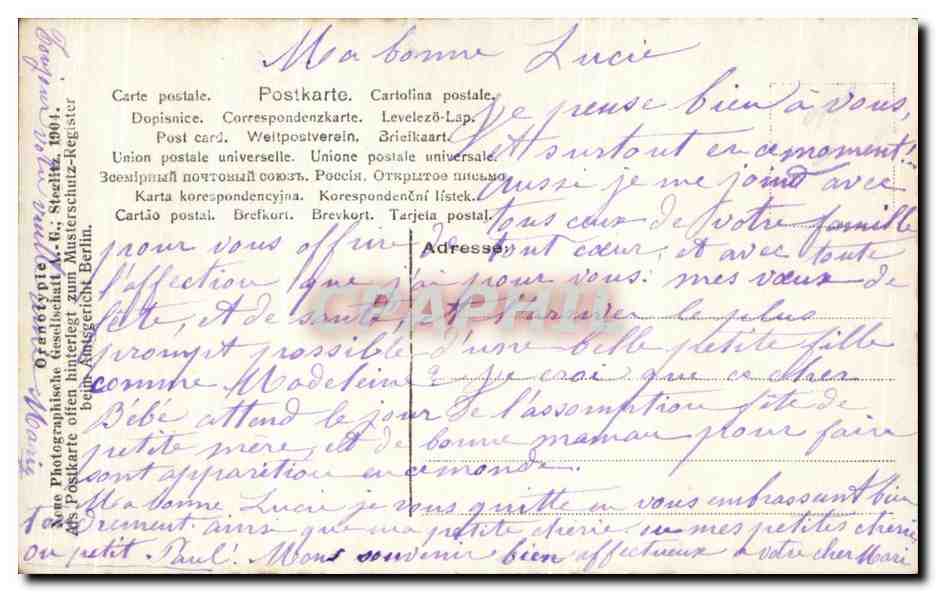 Ma bonne Lucie
Carte postale. Postkarte. Cartolina postale.
Dopisnice. Correspondenzkarte. Levelező-Lap.
Post card. Weltpostverein. Briefkaart.
Union postale universelle. Unione postale universale.
Всемірный почтовый союзъ. Россія. Открытое письмо.
Karta korespondencyjna. Korespondenční lístek.
Cartão postal. Brefkort. Brevkort. Tarjeta postal.
Adresse:
je pense bien à vous,
et surtout en ce moment!
aussi je me joind avec
tous ceux de votre famille
pour vous offrire de tout cœur, et avec toute
l'affection que j'ai pour vous: mes vœux de
fête, et de santé, et l'arrivée le plus
prompt possible d'une belle petite fille
comme Madeleine? je croi que ce cher
Bébé attend le jour de l'assomption fête de
petite mère, et de bonne maman pour faire
sont apparition en ce monde.
Ma bonne Lucie je vous quitte en vous embrassant bien
tendrement ainsi que ma petite cherie ou mes petites cheries
ou petit Paul! Mons souvenir bien affectueux a votre cher Mari
Marie
Neue Photographische Gesellschaft A.-G., Steglitz, 1904.
Orthotypie
Als Postkarte offen hinterlegt zum Musterschutz-Register
beim Amtsgericht Berlin.
CPAPHIL